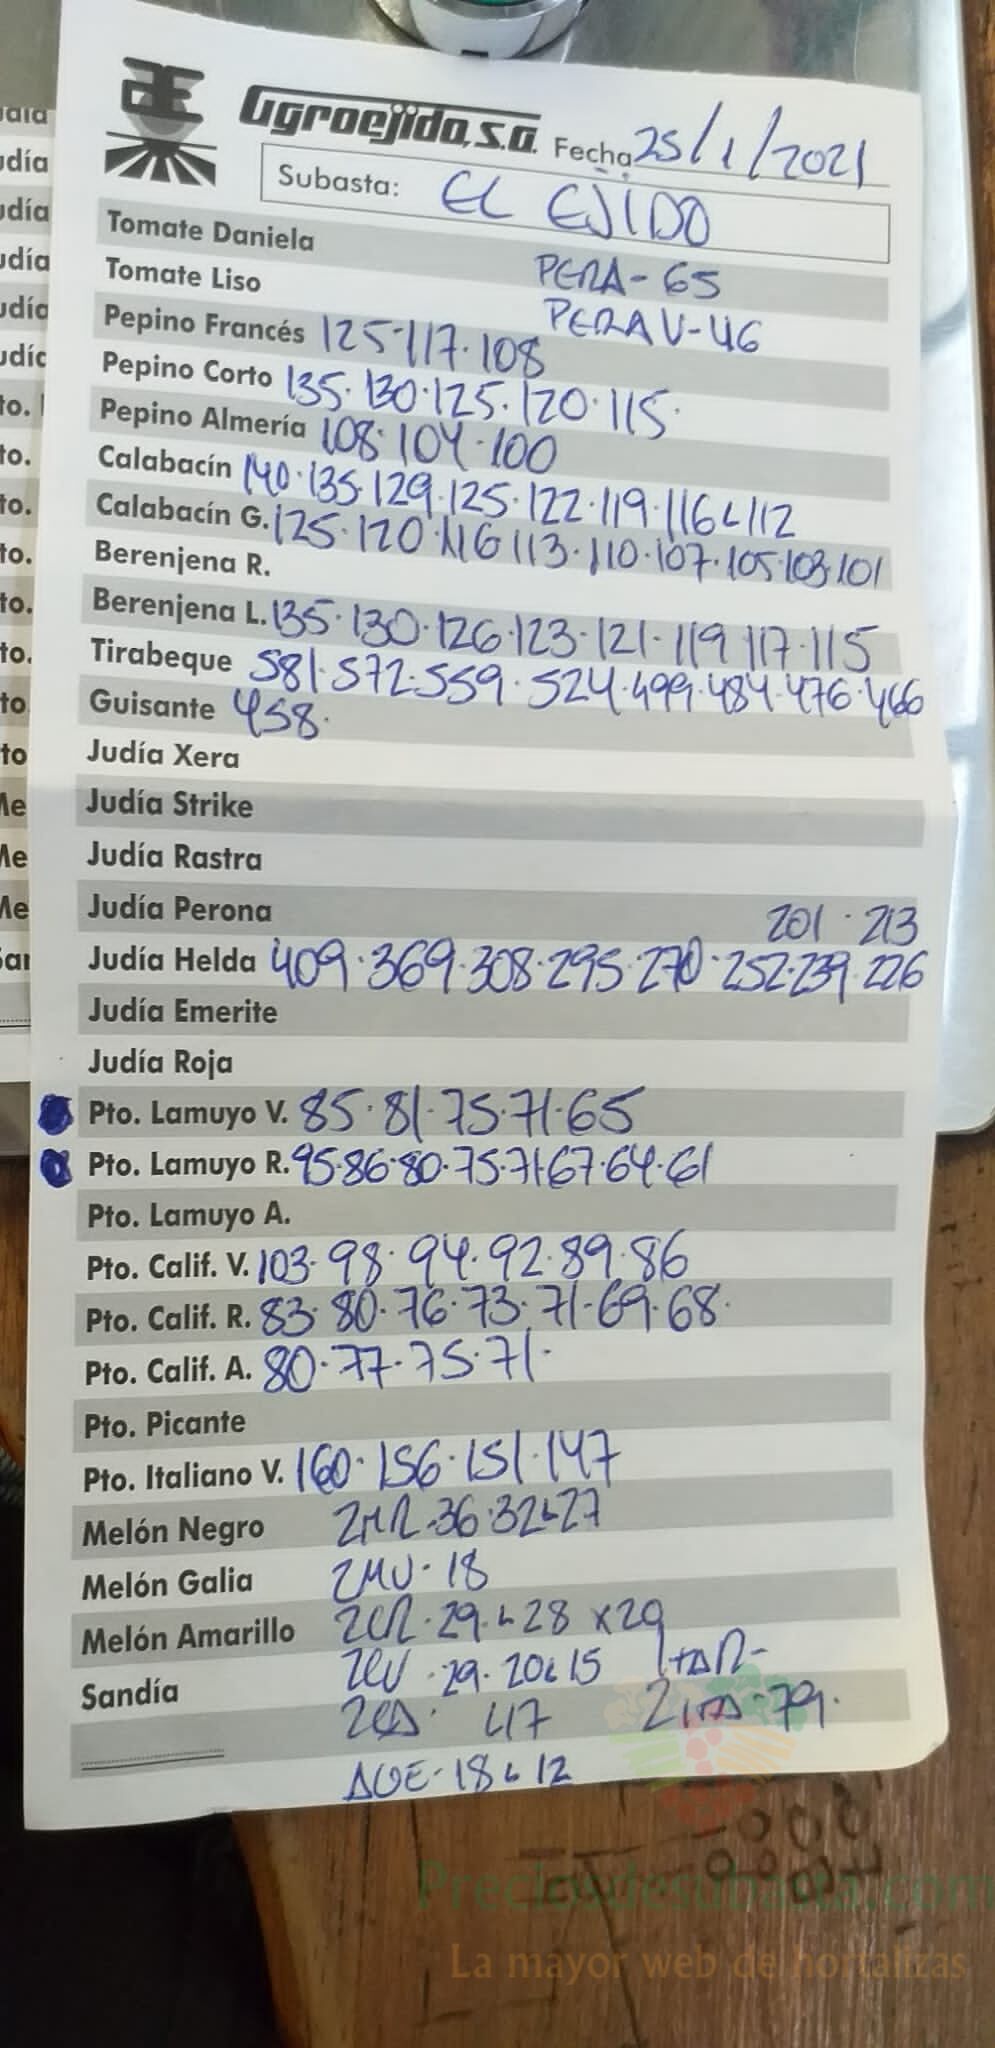 Agroejido, s.a. Fecha 25/1/2021
Subasta: EL EJIDO
Tomate Daniela PERA - 65
Tomate Liso PERA V - 46
Pepino Francés 125·117·108
Pepino Corto 135·130·125·120·115·
Pepino Almería 108·104·100
Calabacín 140·135·129·125·122·119·116 L 112
Calabacín G. 125·120·116 113·110·107·105·103·101
Berenjena R.
Berenjena L. 135·130·126·123·121·119 117·115
Tirabeque 581·572·559·524·499·484·476·466
Guisante 458·
Judía Xera
Judía Strike
Judía Rastra
Judía Perona 201 · 213
Judía Helda 409·369·308·295·270·252·239·226
Judía Emerite
Judía Roja
Pto. Lamuyo V. 85·81·75·71·65
Pto. Lamuyo R. 95·86·80·75·71·67·64·61
Pto. Lamuyo A.
Pto. Calif. V. 103·98·94·92·89·86
Pto. Calif. R. 83·80·76·73·71·69·68·
Pto. Calif. A. 80·77·75·71·
Pto. Picante
Pto. Italiano V. 160·156·151·147
Melón Negro 2MR·36·32 L 27
Melón Galia 2MV·18
Melón Amarillo 2CR·29·L 28 x 29
Sandía 2CV·29·20 L 15 ITAR-
2CA· L 17 2ITA-79·
AGE·18 L 12
Preciosdesubasta.com
La mayor web de hortalizas